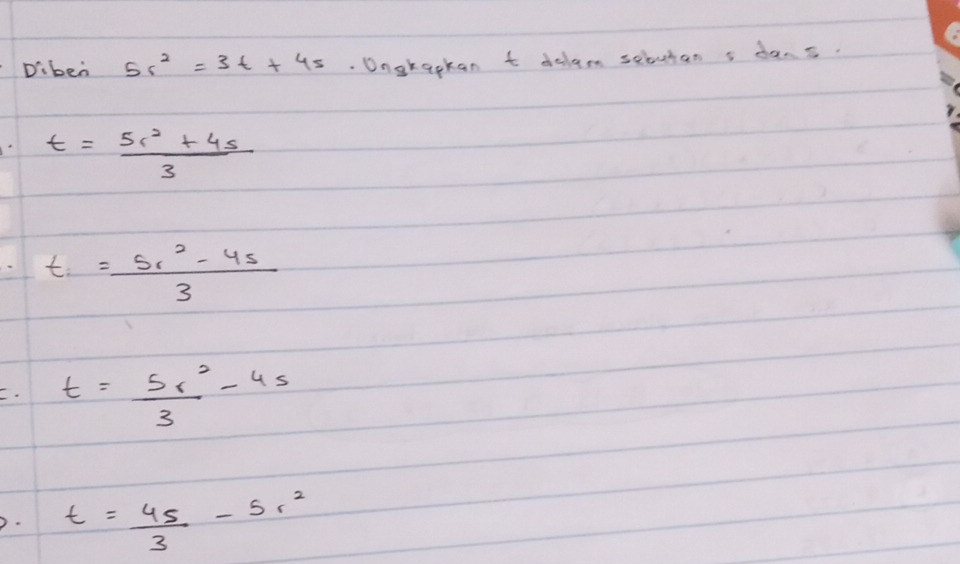 Diberi 5r² = 3t + 4s . Ungkapkan t dalam sebutan s dan s.
t = 5r² + 4s
3
t = 5r² - 4s
3
C. t = 5r² - 4s
3
D. t = 4s - 5r²
3